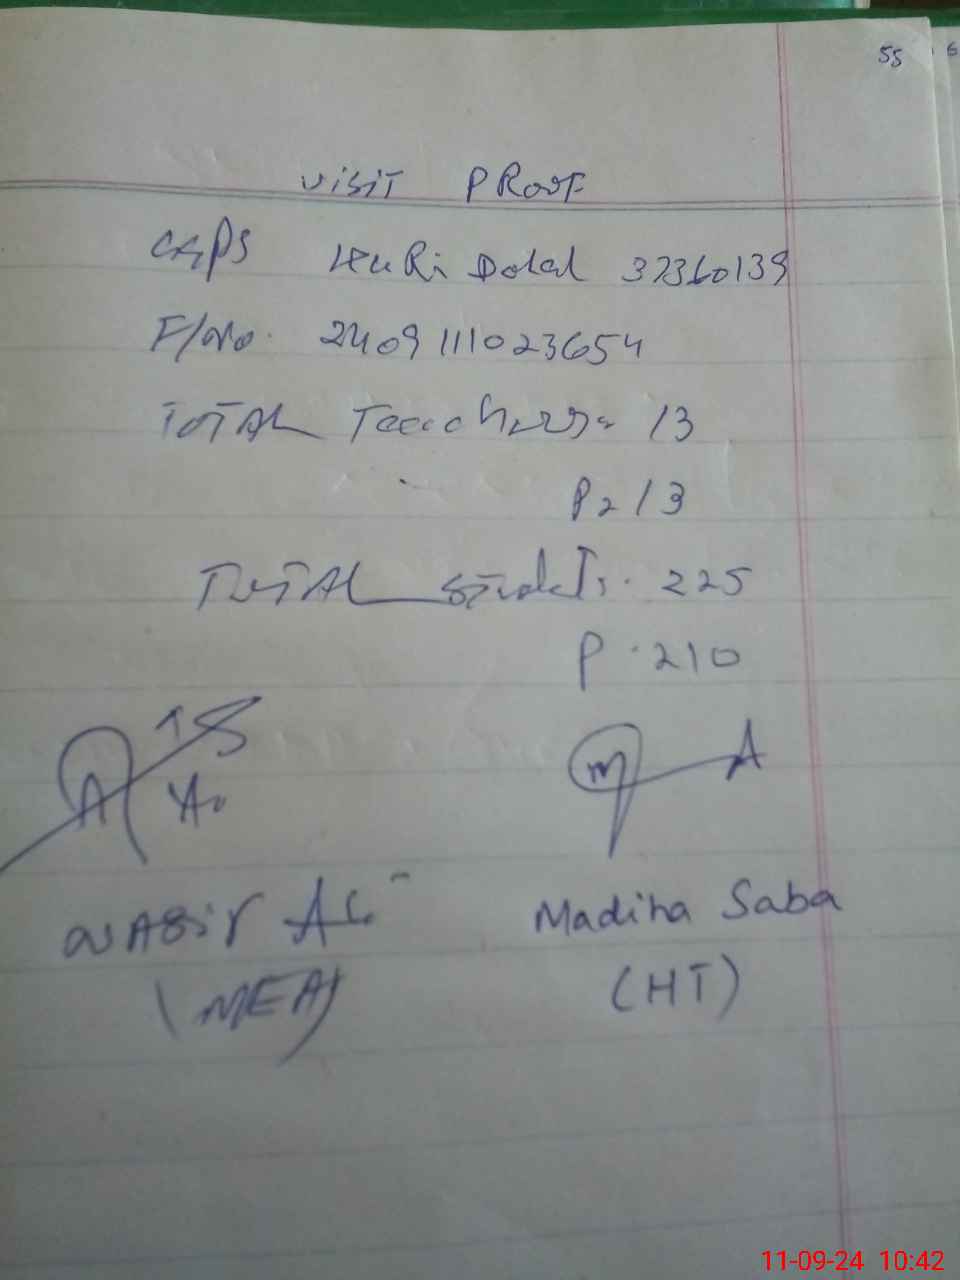 55
6
VISIT PROOF
GGPS Huri Dolal 37360139
F/No. 2409111023654
TOTAL Teachers 13
P = 13
TOTAL Students. 225
P . 210
NASIR Ali
(MEA)
Madiha Saba
(HT)
11-09-24 10:42